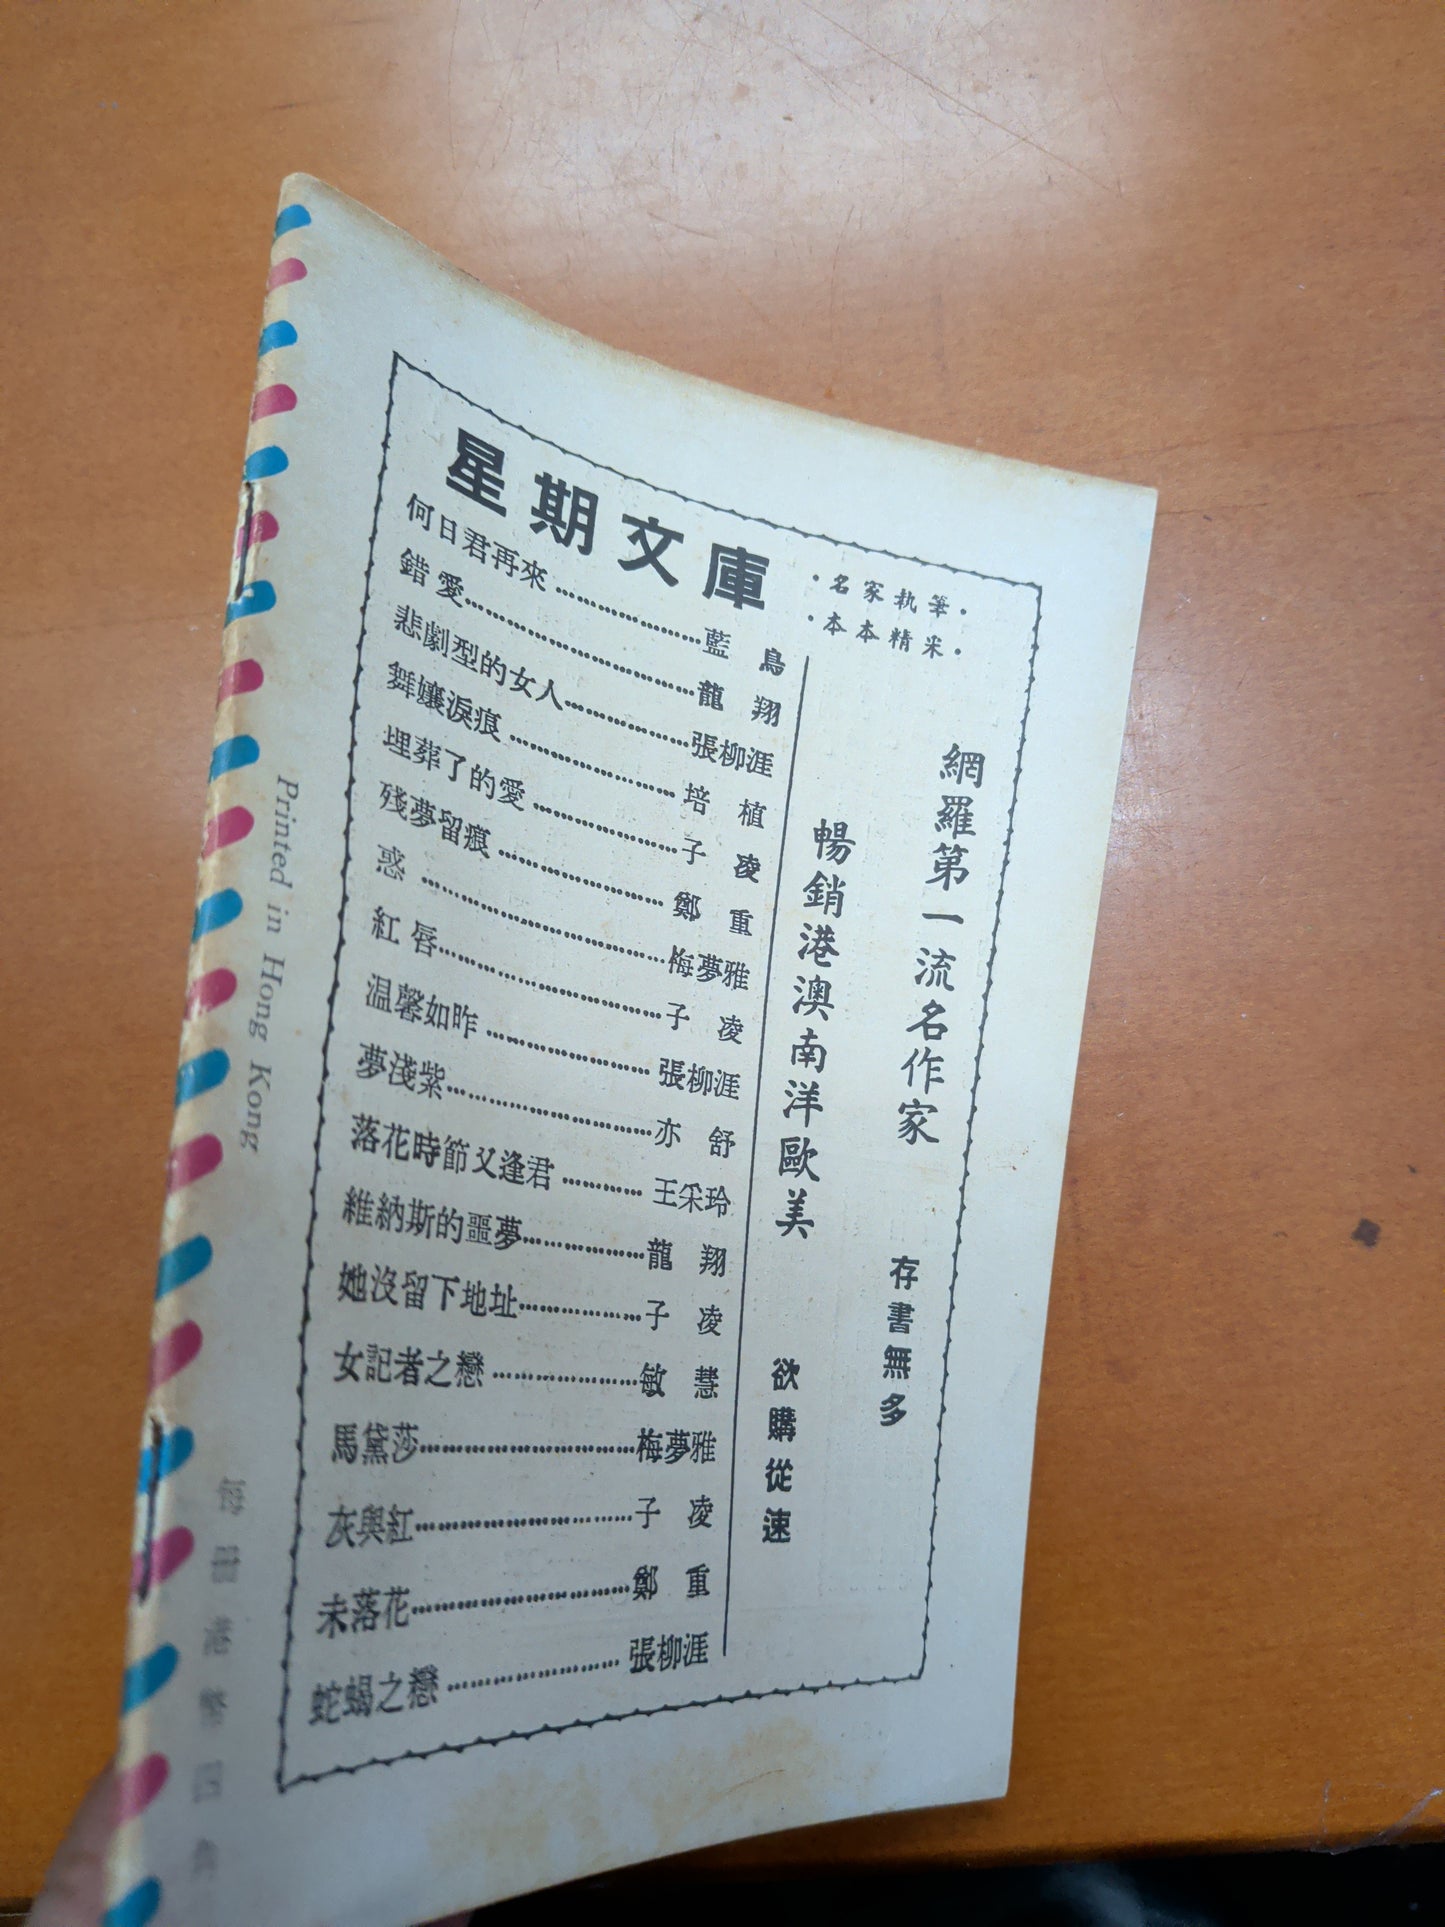 星期文庫
·名家执筆·
·本本精釆·
何日君再來……藍鳥
錯愛……龍翔
悲劇型的女人……張柳涯
舞孃淚痕……培植
埋葬了的愛……子凌
殘夢留痕……鄭重
惑……梅夢雅
紅唇……子凌
温馨如昨……張柳涯
夢淺紫……亦舒
落花時節又逢君……王采玲
維納斯的噩夢……龍翔
她沒留下地址……子凌
女記者之戀……敏慧
馬黛莎……梅夢雅
灰與紅……子凌
未落花……鄭重
蛇蝎之戀……張柳涯
網羅第一流名作家
暢銷港澳南洋歐美
存書無多
欲購從速
Printed in Hong Kong
每冊港幣四角